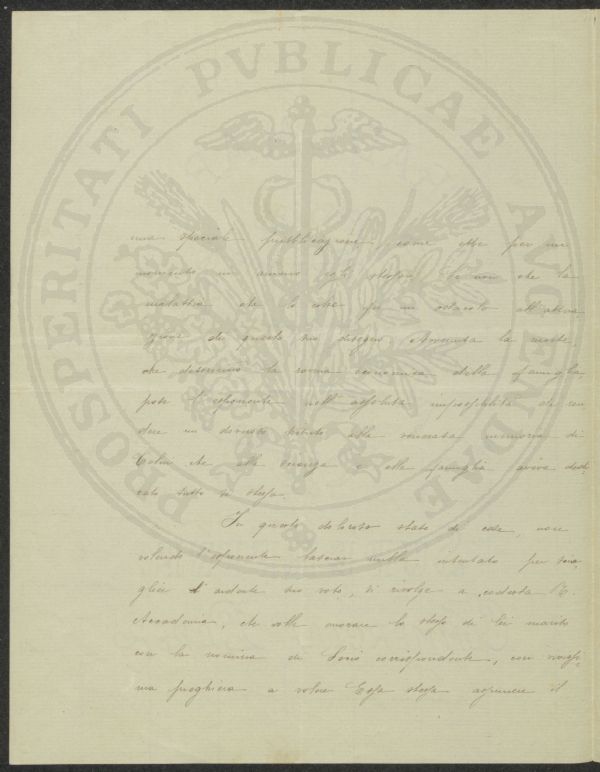 PROSPERITATI PVBLICAE AVGENDAE
una speciale pubblicazione, come ebbe per un
momento in animo egli stesso. Se non che la
malattia che lo colse fu un ostacolo all'attua
zione di questo suo disegno. Avvenuta la morte,
che determinò la rovina economica della famiglia,
pose l'esponente nell'assoluta impossibilità di ren
dere un doveroso tributo alla venerata memoria di
Colui che alla scienza e alla famiglia aveva dedi
cato tutto sè stesso.
In questo doloroso stato di cose, non
volendo l'esponente lasciar nulla intentato per
l'ardente suo voto, si rivolge a codesta R.
Accademia, che volle onorare lo stesso di lei marito
con la nomina di Socio corrispondente, con
preghiera a volere Essa stessa assumere il